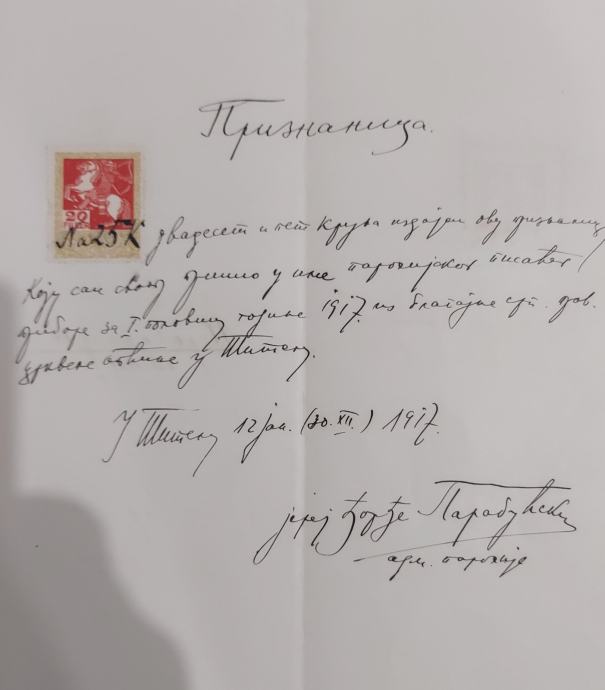 Признаница.
20
На 25 К двадесет и пет круна издајем ову признаницу
коју сам своту примио у име парохијског писаћег
прибора за I. половину године 1917. из благајне срп. прав.
црквене општине у Тителу.
У Тителу 12 јан. (30. XII.) 1917.
јереј Ђорђе Парабућски
адм. парохије